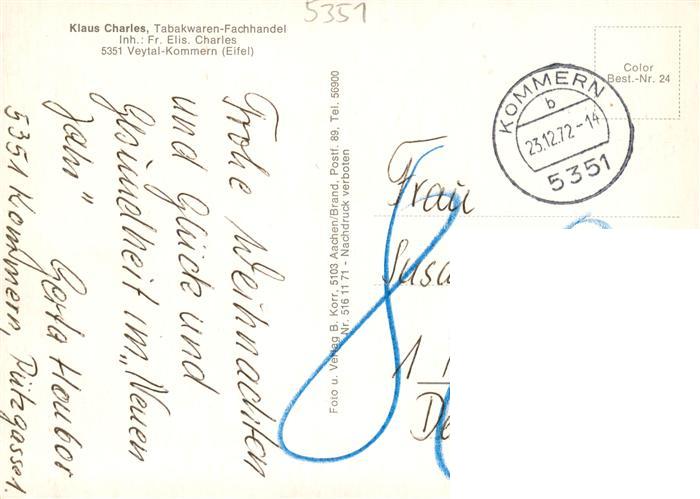 5351
Klaus Charles, Tabakwaren-Fachhandel
Inh.: Fr. Elis. Charles
5351 Veytal-Kommern (Eifel)
Color
Best.-Nr. 24
KOMMERN
b
23.12.72-14
5351
Frohe Weihnachten
und Glück und
Gesundheit im „Neuen
Jahr"
5351 Kommern, Pützgasse 1.
Foto u. Verlag B. Korr, 5103 Aachen/Brand, Postf. 89, Tel. 56900
Nr. 516 11 71 - Nachdruck verboten
Frau
1